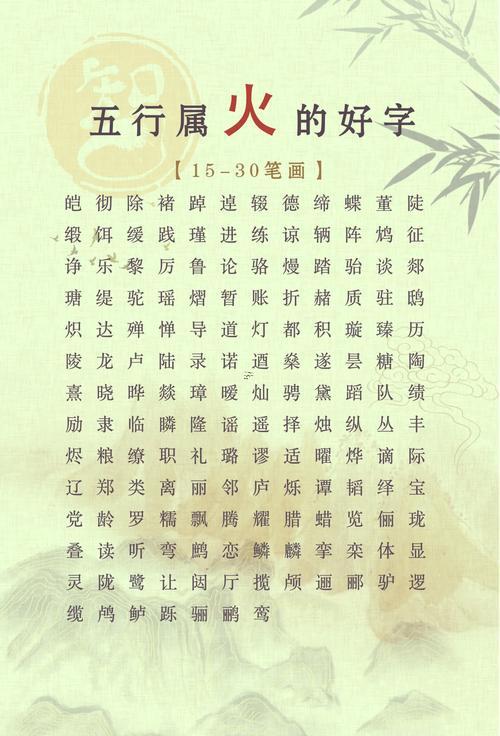 智
五行属火的好字
【15-30笔画】
皑 彻 除 褚 踔 逴 辍 德 缔 蝶 董 陡
缎 饵 缓 践 瑾 进 练 谅 辆 阵 鸩 征
诤 乐 黎 厉 鲁 论 骆 熳 踏 骀 谈 郯
瑭 缇 驼 瑶 熠 暂 账 折 赭 质 驻 鸱
炽 达 殚 惮 导 道 灯 都 积 璇 臻 历
陵 龙 卢 陆 录 诺 遒 燊 遂 昙 糖 陶
熹 晓 晔 燚 璋 暖 灿 骋 黛 蹈 队 绩
励 隶 临 瞵 隆 谣 遥 择 烛 纵 丛 丰
烬 粮 缭 职 礼 璐 谬 适 曜 烨 谪 际
辽 郑 类 离 丽 邻 庐 烁 谭 韬 绎 宝
党 龄 罗 糯 飘 腾 耀 腊 蜡 览 俪 珑
叠 读 听 弯 鹧 恋 鳞 麟 挛 栾 体 显
灵 陇 鹭 让 闼 厅 揽 颅 逦 郦 驴 逻
缆 鸬 鲈 跞 骊 鹂 鸾